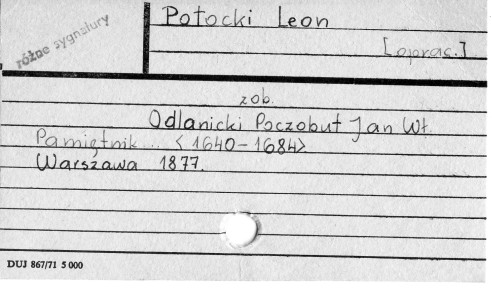 Potocki Leon
różne sygnatury
[oprac.]
zob.
Odlanicki Poczobut Jan Wł.
Pamiętnik ... <1640-1684>
Warszawa 1877.
DUJ 867/71 5 000